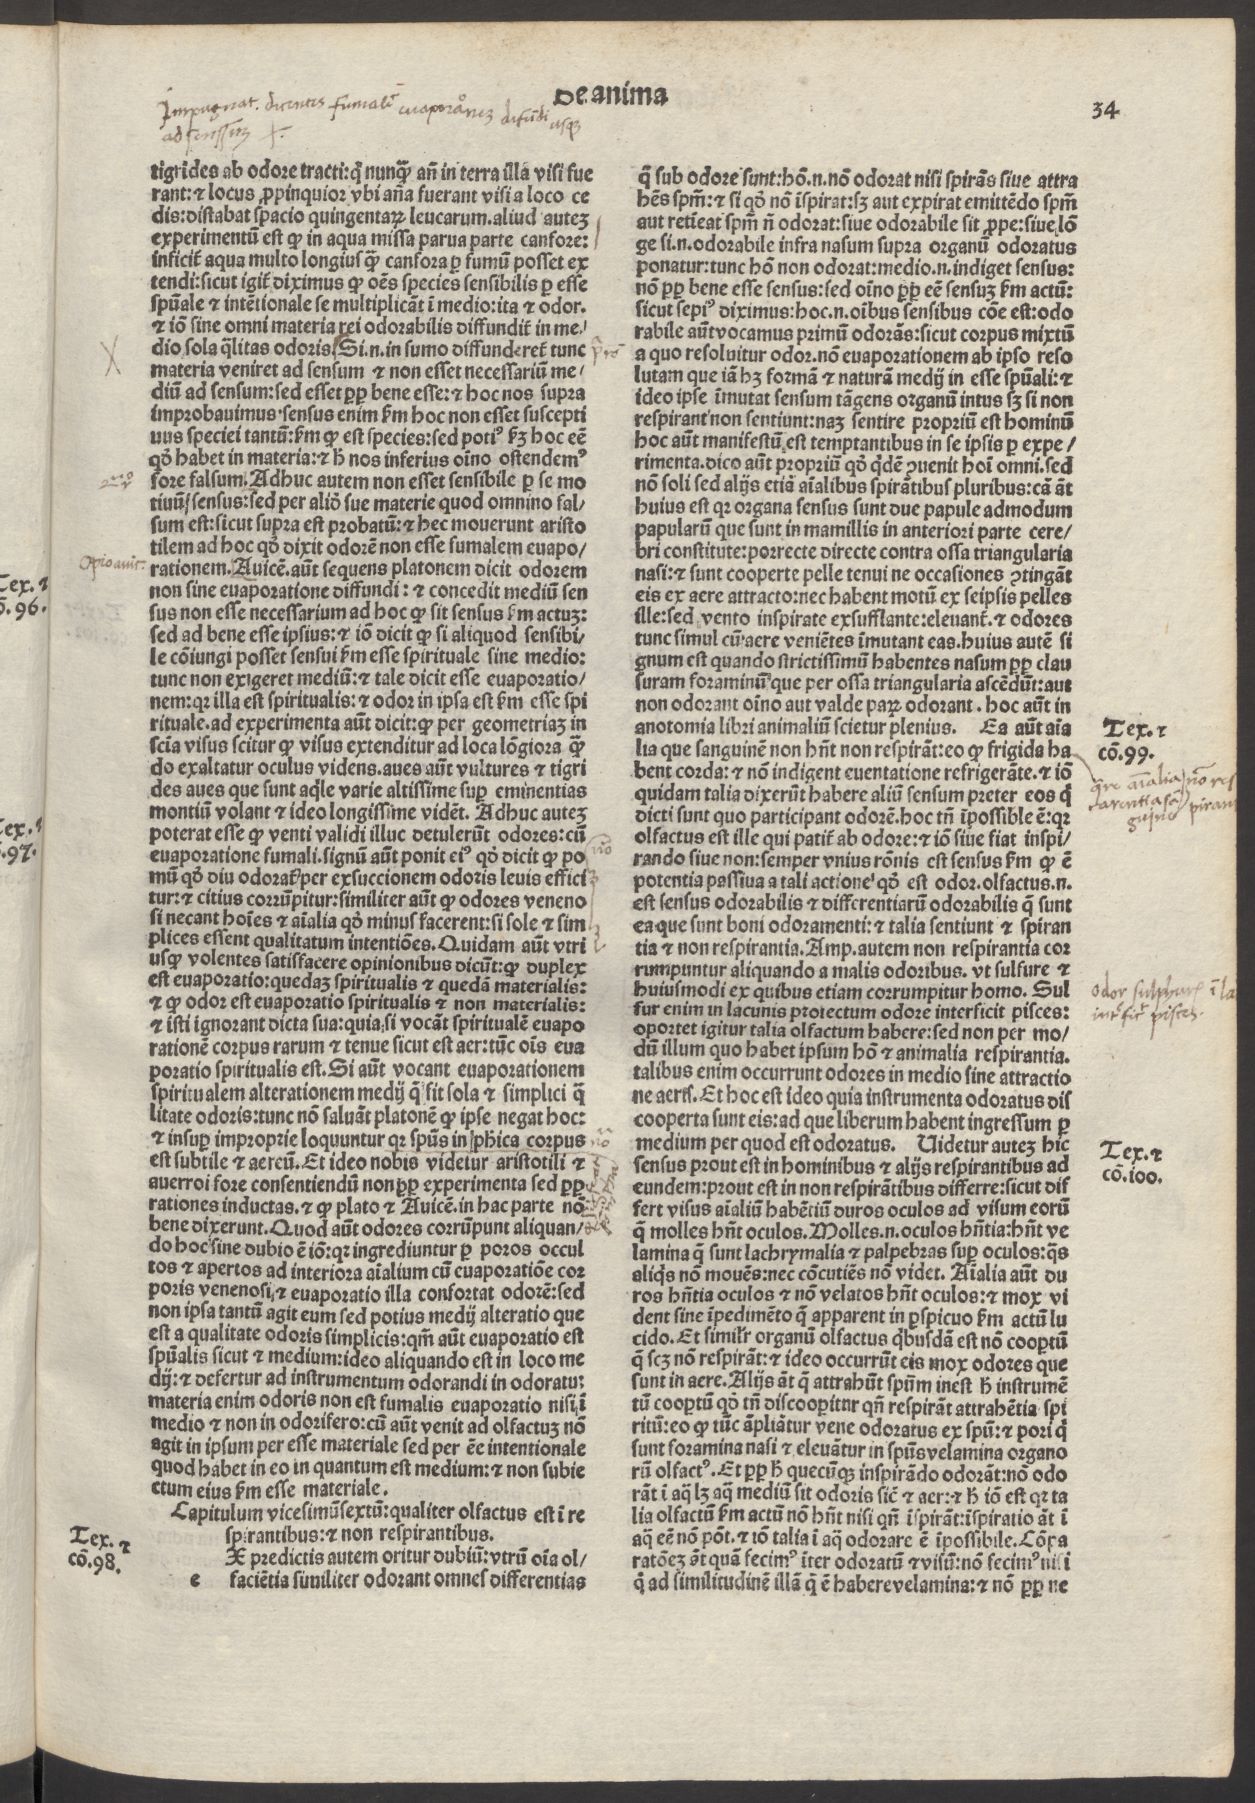 De anima
34
Impugnat. dicentes fumalē euaporaōnez difundi usqz
ad sensum
tigrides ab odore tracti:q̄ nunq̄ʒ an̄ in terra illa visi fue
rant:⁊ locus ꝓpinquior vbi aīa fuerant visi a loco ce
dis:distabat spacio quingentaꝝ leucarum.aliud autez
experimentū est ꝙ in aqua missa parua parte canfore:
inficit̄ aqua multo longius q̄ʒ canfora ꝑ fumū posset ex
tendi:sicut igit̄ diximus ꝙ oēs species sensibilis ꝑ esse
spūale ⁊ intētionale se multiplicāt ī medio:ita ⁊ odor.
⁊ iō sine omni materia rei odorabilis diffundit̄ in me/
dio sola q̄litas odoris.Si.n.in fumo diffunderet̄ tunc
materia veniret ad sensum ⁊ non esset necessariū me/
diū ad sensum:sed esset ꝓꝑ bene esse:⁊ hoc nos supra
improbauimus.sensus enim ẜm hoc non esset suscepti
uus speciei tantū:ẜm ꝙ est species:sed potiꝰ ẜʒ hoc eē
qḋ habet in materia:⁊ ħ nos inferius oīno ostendemꝰ
fore falsum.Adhuc autem non esset sensibile ꝑ se mo
tiuū sensus:sed per aliō sue materie quod omnino fal/
sum est:sicut supra est probatū:⁊ hec mouerunt aristo
tilem ad hoc qḋ dixit odorē non esse fumalem euapo/
rationem.Auicē.aūt sequens platonem dicit odorem
non sine euaporatione diffundi:⁊ concedit mediū sen
sus non esse necessarium ad hoc ꝙ sit sensus ẜm actuz:
sed ad bene esse ipsius:⁊ iō dicit ꝙ si aliquod sensibi/
le cōiungi posset sensui ẜm esse spirituale sine medio:
tunc non exigeret mediū:⁊ tale dicit esse euaporatio/
nem:qꝛ illa est spiritualis:⁊ odor in ipsa est ẜm esse spi
rituale.ad experimenta aūt dicit:ꝙ per geometriaz in
scīa visus scitur ꝙ visus extenditur ad loca lōgiora q̄ʒ
do exaltatur oculus videns.aues aūt vultures ⁊ tigri
des aues que sunt aq̄le varie altissime suꝑ eminentias
montiū volant ⁊ ideo longissime vidēt. Adhuc autez
poterat esse ꝙ venti validi illuc detulerūt odores:cū
euaporatione fumali.signū aūt ponit eiꝰ qḋ dicit ꝙ po
mū qḋ diu odorat̄ per exsuccionem odoris leuis effici
tur:⁊ citius corrūpitur:similiter aūt ꝙ odores veneno
si necant hoīes ⁊ aīalia qḋ minus facerent:si sole ⁊ sim
plices essent qualitatum intentiōes.Quidam aūt vtri
usqꝫ volentes satisfacere opinionibus dicūt:ꝙ duplex
est euaporatio:quedaz spiritualis ⁊ quedā materialis:
⁊ ꝙ odor est euaporatio spiritualis ⁊ non materialis:
⁊ isti ignorant dicta sua:quia,si vocāt spiritualē euapo
rationē corpus rarum ⁊ tenue sicut est aer:tūc oīs eua
poratio spiritualis est.Si aūt vocant euaporationem
spiritualem alterationem medij q̄ fit sola ⁊ simplici q̄
litate odoris:tunc nō saluāt platonē ꝙ ipse negat hoc:
⁊ insuꝑ improprie loquuntur qꝛ spūs in ph̄ica corpus
est subtile ⁊ aereū.Et ideo nobis videtur aristotili ⁊
auerroi fore consentiendū non ꝓꝑ experimenta sed ꝓꝑ
rationes inductas.⁊ ꝙ plato ⁊ Auicē.in hac parte nō
bene dixerunt.Quod aūt odores corrūpunt aliquan/
do hoc sine dubio ē iō:qꝛ ingrediuntur ꝑ poros occul
tos ⁊ apertos ad interiora aīalium cū euaporatiōe cor
poris venenosi,⁊ euaporatio illa confortat odorē:sed
non ipsa tantū agit eum sed potius medij alteratio que
est a qualitate odoris simplicis:qm̄ aūt euaporatio est
spūalis sicut ⁊ medium:ideo aliquando est in loco me
dij:⁊ defertur ad instrumentum odorandi in odoratu:
materia enim odoris non est fumalis euaporatio nisi,ī
medio ⁊ non in odorifero:cū aūt venit ad olfactuz nō
agit in ipsum per esse materiale sed per eē intentionale
quod habet in eo in quantum est medium:⁊ non subie
ctum eius ẜm esse materiale.
Capitulum vicesimūsextū:qualiter olfactus est ī re
spirantibus:⁊ non respirantibus.
X predictis autem oritur dubiū:vtrū oīa ol/
e faciētia similiter odorant omnes differentias
q̄ sub odore sunt:hō.n.nō odorat nisi spirās siue attra
hēs spm̄:⁊ si qḋ nō īspirat:sʒ aut expirat emittēdo spm̄
aut retīeat spm̄ n̄ odorat:siue odorabile sit ꝓpe:siue lō
ge si.n.odorabile infra nasum supra organū odoratus
ponatur:tunc hō non odorat:medio.n.indiget sensus:
nō ꝓꝑ bene esse sensus:sed oīno ꝓꝑ eē sensuz ẜm actū:
sicut sepiꝰ diximus:hoc.n.oībus sensibus cōe est:odo
rabile aūt vocamus primū odorās:sicut corpus mixtū
a quo resoluitur odor.nō euaporationem ab ipso reso
lutam que iā hʒ formā ⁊ naturā medij in esse spūali:⁊
ideo ipse īmutat sensum tāgens organū intus sʒ si non
respirant non sentiunt:naz sentire propriū est hominū
hoc aūt manifestū est temptantibus in se ipsis ꝑ expe/
rimenta.dico aūt propriū qḋ q̇dē ꝯuenit hoī omni.sed
nō soli sed alijs etiā aīalibus spirātibus pluribus:cā āt
huius est qꝛ organa sensus sunt due papule admodum
papularū que sunt in mamillis in anteriori parte cere/
bri constitute:porrecte directe contra ossa triangularia
nasi:⁊ sunt cooperte pelle tenui ne occasiones ꝯtingāt
eis ex aere attracto:nec habent motū ex seipsis pelles
ille:sed vento inspirate exsufflante:eleuant̄.⁊ odores
tunc simul cū aere veniētes īmutant eas.huius autē si
gnum est quando strictissimū habentes nasum ꝓꝑ clau
suram foraminū que per ossa triangularia ascēdūt:aut
non odorant oīno aut valde paꝝ odorant. hoc aūt in
anotomia libri animaliū scietur plenius. Ea aūt aīa
lia que sanguinē non hn̄t non respirāt:eo ꝙ frigida ha
bent corda:⁊ nō indigent euentatione refrigerāte.⁊ iō
quidam talia dixerūt habere aliū sensum preter eos q̇
dicti sunt quo participant odorē.hoc tn̄ īpossibile ē:qꝛ
olfactus est ille qui patit̄ ab odore:⁊ iō siue fiat inspi/
rando siue non:semper vnius rōnis est sensus ẜm ꝙ ē
potentia passiua a tali actione qḋ est odor.olfactus.n.
est sensus odorabilis ⁊ differentiarū odorabilis q̄ sunt
ea que sunt boni odoramenti:⁊ talia sentiunt ⁊ spiran
tia ⁊ non respirantia.Amp.autem non respirantia cor
rumpuntur aliquando a malis odoribus. vt sulfure ⁊
huiusmodi ex quibus etiam corrumpitur homo. Sul
fur enim in lacunis proiectum odore interficit pisces:
oportet igitur talia olfactum habere:sed non per mo/
dū illum quo habet ipsum hō ⁊ animalia respirantia.
talibus enim occurrunt odores in medio sine attractio
ne aeris.Et hoc est ideo quia instrumenta odoratus dis
cooperta sunt eis:ad que liberum habent ingressum ꝑ
medium per quod est odoratus. Uidetur autez hic
sensus prout est in hominibus ⁊ alijs respirantibus ad
eundem:prout est in non respirātibus differre:sicut dif
fert visus aīaliū habētiū duros oculos ad visum eorū
q̄ molles hn̄t oculos.Molles.n.oculos hn̄tia:hn̄t ve
lamina q̄ sunt lachrymalia ⁊ palpebras suꝑ oculos:q̄s
aliq̇s nō mouēs:nec cōcutiēs nō videt. Aīalia aūt du
ros hn̄tia oculos ⁊ nō velatos hn̄t oculos:⁊ mox vi
dent sine īpedimēto q̄ apparent in ꝑspicuo ẜm actū lu
cido.Et simil̄r organū olfactus q̇busdā est nō cooꝑtū
q̄ scʒ nō respirāt:⁊ ideo occurrūt eis mox odores que
sunt in aere.Alijs āt q̄ attrahūt spūm inest ħ instrumē
tū cooꝑtū qḋ tn̄ discooperitur qn̄ respirāt attrahētia spi
ritū:eo ꝙ tūc āpliātur vene odoratus ex spū:⁊ pori q̇
sunt foramina nasi ⁊ eleuātur in spūs velamina organo
rū olfactꝰ.Et ꝓꝑ ħ quecūqꝫ inspirādo odorāt:nō odo
rāt ī aq̄ lʒ aq̄ mediū sit odoris sic̄ ⁊ aer:⁊ ħ iō est qꝛ ta
lia olfactū ẜm actū nō hn̄t nisi qn̄ īspirāt:īspiratio āt ī
aq̄ eē nō pōt.⁊ iō talia ī aq̄ odorare ē īpossibile.Cōꝑa
ratōez āt quā fecimꝰ īter odoratū ⁊ visū:nō fecimꝰ nisi
q̇ ad similitudinē illā q̄ ē habere velamina:⁊ nō ꝓꝑ ne
Tex.⁊
cō.98.
Tex.⁊
cō.99.
Tex.⁊
cō.100.
Tex.⁊
96.
Tex.
97.
Opio auic.
q̄re aīalia
carentia sā
guīe
nō res
pirant
odor sulphuris ī la
interfic̄ pisces.